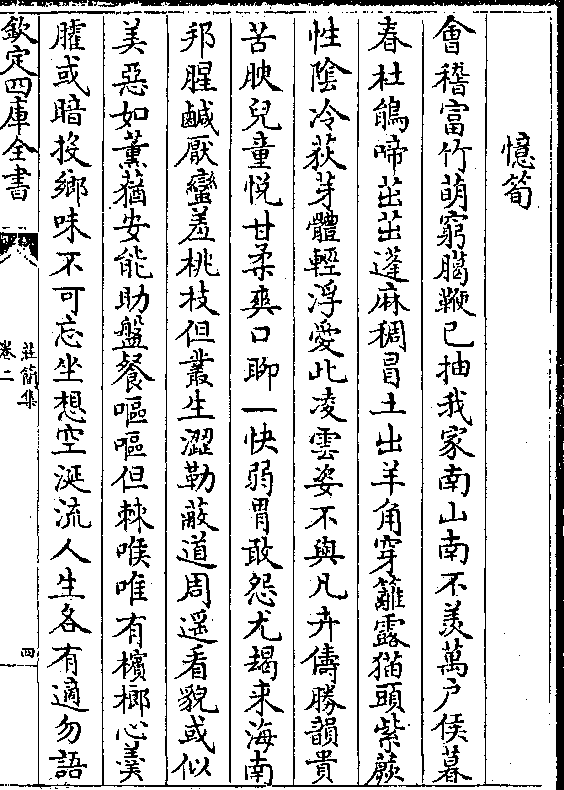 憶筍
會稽富竹萌窮臈鞭已抽我家南山南不羡萬户侯暮
春杜鵑啼茁茁蓬麻稠冒土出羊角穿籬露猫頭紫蕨
性陰冷荻芽體輕浮愛此凌雲姿不與凡卉儔勝韻貴
苦腴兒童悦甘柔爽口聊一快弱胃敢怨尤朅来海南
邦腥鹹厭蠻羞桃枝但叢生澀勒蔽道周遥看貌或似
美惡如薰蕕安能助盤餐嘔嘔但棘喉唯有檳榔心羹
臛或暗投鄉味不可忘坐想空涎流人生各有適勿語
欽定四庫全書
莊簡集
卷二
四